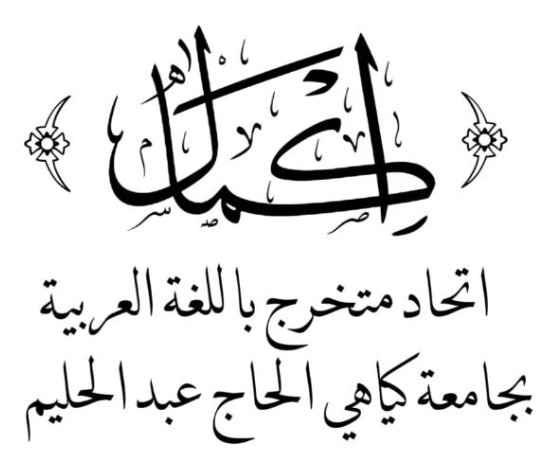 إكمال
اتحاد متخرج باللغة العربية
بجامعة كياهي الحاج عبد الحليم